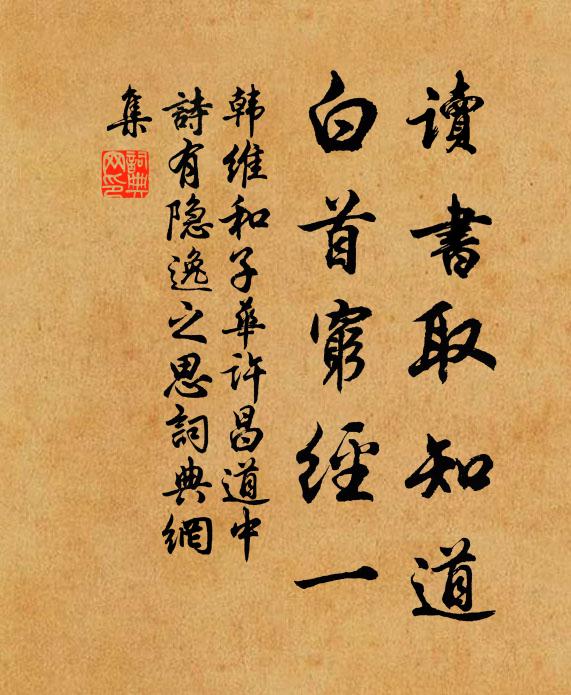 讀書取知道
白首窮經一
韩維和子華许昌道中
詩有隐逸之思詞典網
集
詞典网印